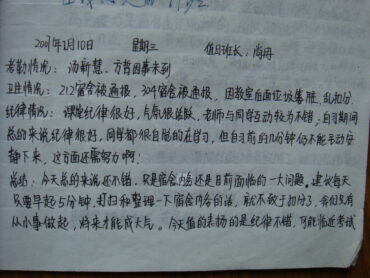 2007年1月10日 星期三 值日班长：尚丹
考勤情况：汤新慧、方哲因事未到
卫生情况：212宿舍被通报，304宿舍被通报，因教室后面垃圾篓脏，乱扣分.
纪律情况：课堂纪律很好，气氛很活跃，老师与同学互动较为不错，自习期间
总的来说纪律很好，同学都很自觉的在学习，但自习前的几分钟仍不能主动安
静下来，这方面还需努力啊！
总结：今天总的来说还不错，只是宿舍内务还是目前面临的一大问题。建议每天
只要早起5分钟，打扫和整理一下宿舍内务的话，就不致于扣分了，我们只有
从小事做起，将来才能成大气。今天值的表扬的是纪律不错，可能临近考试